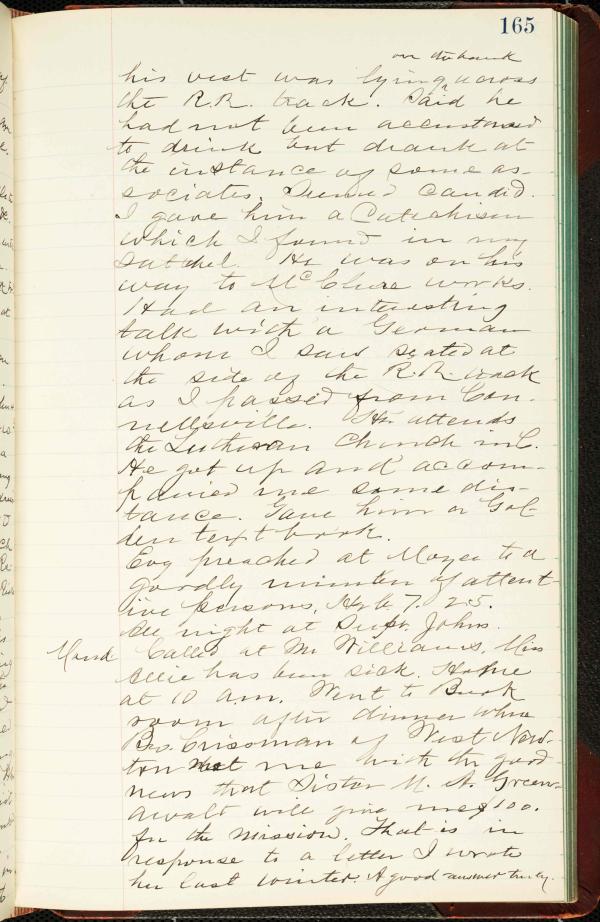 165
on the bank
his vest was lying across
the R.R. track. Said he
had not been accustomed
to drink but drank at
the instance of some as-
sociates. Seemed candid.
I gave him a Catechism
which I found in my
satchel. He was on his
way to McClure works.
Had an interesting
talk with a German
whom I saw seated at
the side of the R.R. track
as I passed from Con-
nellsville. He attends
the Lutheran Church in C.
He got up and accom-
panied me some dis-
tance. Gave him a Gol-
den text book.
Evg preached at Moyer to a
goodly number of attent-
ive persons, Heb 7. 25.
All night at Supt. Johns.
Mond Called at Mr Williams, Miss
Allie has been sick. Home
at 10 a.m. Went to Book
room after dinner where
Bro. Crissman of West New-
ton met me with the good
news that Sister M. A. Green-
awalt will give me $100.
for the Mission. That is in
response to a letter I wrote
her last winter. A good answer truly.